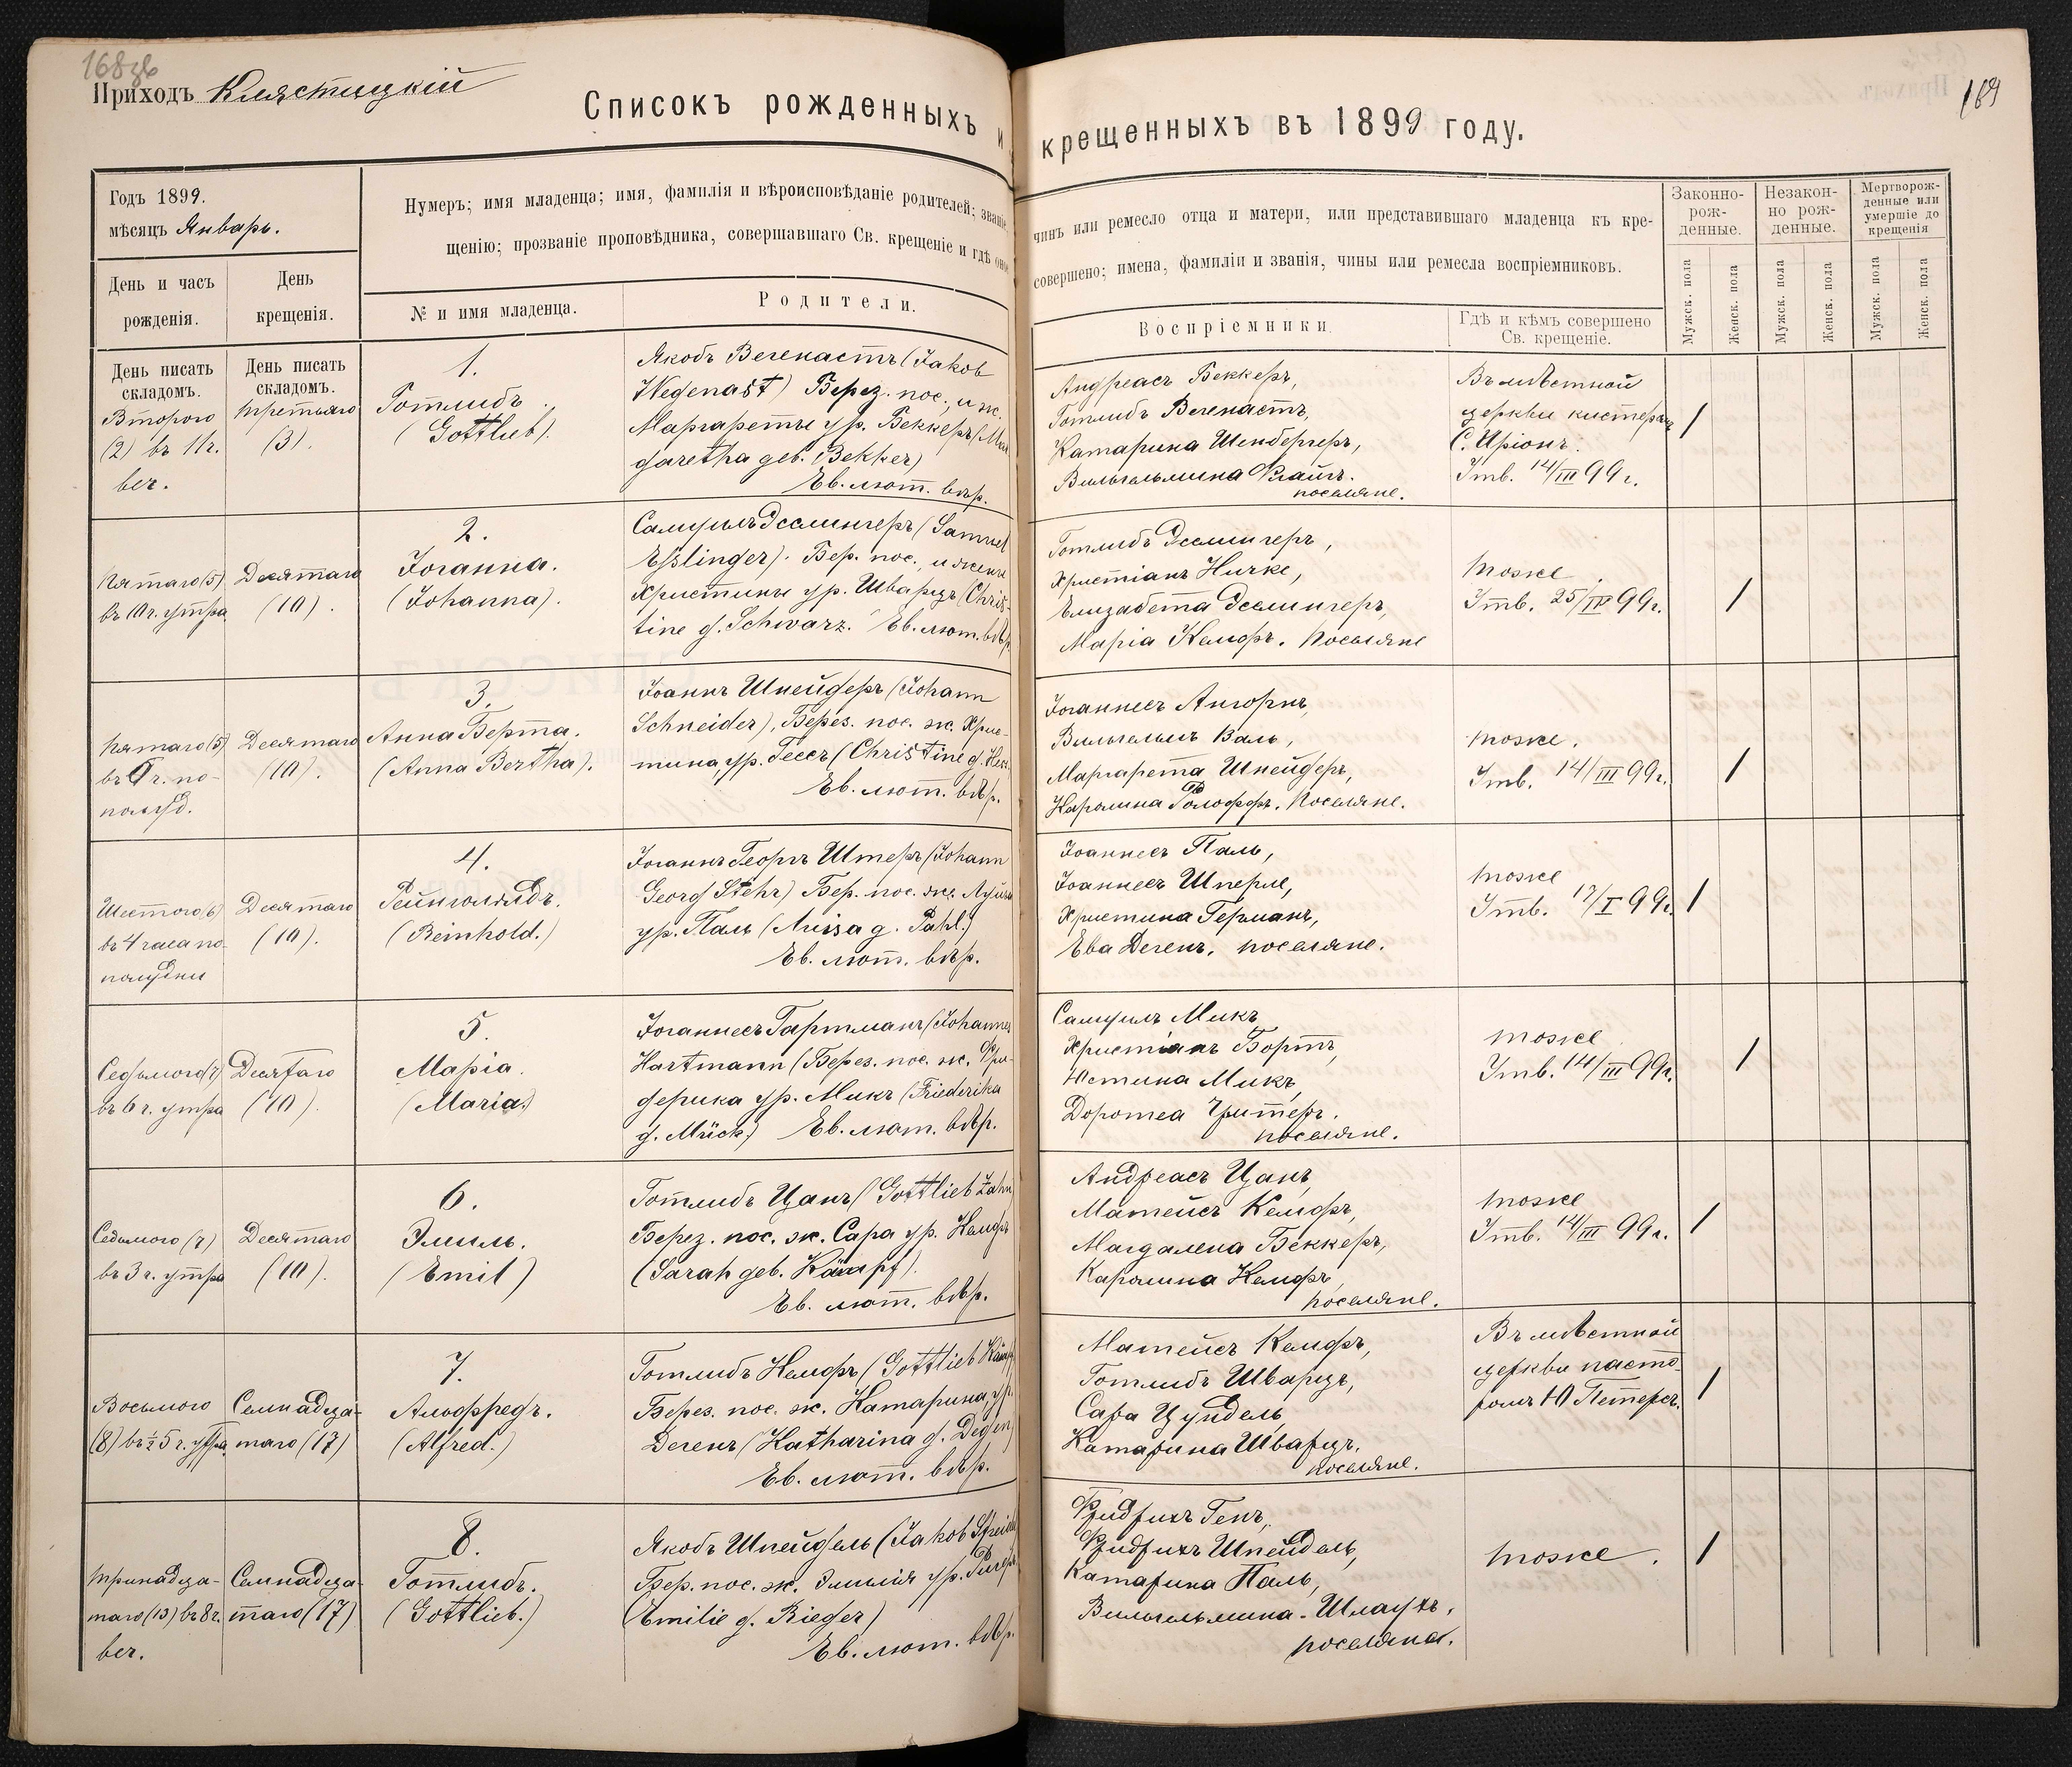 168
Приходъ Клястицкій
169
Списокъ рожденныхъ и крещенныхъ въ 1899 году.
Годъ 1899.
мѣсяцъ Январь.
Нумеръ; имя младенца; имя, фамилія и вѣроисповѣданіе родителей; званіе, чинъ или ремесло отца и матери, или представившаго младенца къ кре-
щенію; прозваніе проповѣдника, совершавшаго Св. крещеніе и гдѣ оное совершено; имена, фамиліи и званія, чины или ремесла воспріемниковъ.
Законно-
рож-
денные.
Незакон-
но рож-
денные.
Мертворож-
денные или
умершіе до
крещенія
День и часъ
рожденія.
День
крещенія.
№ и имя младенца.
Родители.
Воспріемники.
Гдѣ и кѣмъ совершено
Св. крещеніе.
Мужск. пола
Женск. пола
Мужск. пола
Женск. пола
Мужск. пола
Женск. пола
День писать
складомъ.
Второго
(2) въ 11 ч.
веч.
День писать
складомъ.
Третьяго
(3).
1.
Готлибъ.
(Gottlieb).
Якобъ Вегенастъ (Jakob
Wegenast) Берез. пос., и ж.
Маргареты ур. Беккеръ (Mar
garetha geb. Bekker)
Ев. лют. вѣр.
Андреасъ Беккеръ,
Готлибъ Вегенастъ,
Катарина Шенбергеръ,
Вильгельмина
поселяне.
Въ мѣстной
церкви кистеръ
С. Иріонъ.
Утв. 14/III 99 г.
/
Пятаго (5)
въ 10 ч. утра
Десятаго
(10).
2.
Іоганна.
(Johanna).
Самуилъ Эсслингеръ (Samuel
Eßlinger). Бер. пос., и жены
Христины ур. Шварцъ (Chris-
tine g. Schwarz. Ев. лют. вѣр.
Готлибъ Эсслингеръ,
Христіанъ Ничке,
Елизабета Эсслингеръ,
Марія Кемфъ. Поселяне
Тоже.
Утв. 25/IV 99 г.
/
Пятаго (5)
въ ч. по-
полуд.
Десятаго
(10).
3.
Анна Берта.
(Anna Bertha).
Іоаннъ Шнейдеръ (Johann
Schneider), Берез. пос. ж. Хрис-
тина, ур. Гессъ (Christine g. Hess
Ев. лют. вѣр.
Іоганнесъ Ангорнъ,
Вильгельмъ Валь,
Маргарета Шнейдеръ,
Каролина Рологгъ. Поселяне.
Тоже.
Утв. 14/III 99 г.
/
Шестого (6)
въ 4 часа по-
полудни
Десятаго
(10).
4.
Рейнгольдъ.
(Reinhold.)
Іоганнъ Георгъ Штеръ (Johann
Georg Stehr) Бер. пос. ж. Луиза
ур. Паль (Luisa g. Pahl.)
Ев. лют. вѣр.
Іоаннесъ Паль,
Іоаннесъ Шперле,
Христина Германъ,
Ева Дегенъ. поселяне.
Тоже
Утв. 17/I 99 г.
/
Седьмого (7)
въ 6 ч. утра
Десятаго
(10).
5.
Марія.
(Maria.)
Іоганнесъ Гартманъ (Johannes
Hartmann (Берез. пос. ж. Фри-
дерика ур. Микъ (Friederika
g. Mück.) Ев. лют. вѣр.
Самуилъ Микъ,
Христіанъ Бортъ,
Юстина Микъ,
Доротеа
поселяне.
Тоже
Утв. 14/III 99 г.
/
Седьмого (7)
въ 3 ч. утра
Десятаго
(10).
6.
Эмиль.
(Emil)
Готлибъ Цанъ (Gottlieb Zahn
Берез. пос. ж. Сара ур. Кемфъ
(Sarah geb. Kämpf).
Ев. лют. вѣр.
Андреасъ Цанъ,
Матеисъ Кемфъ,
Магдалена Беккеръ,
Каролина Кемфъ,
поселяне.
Тоже
Утв. 14/III 99 г.
/
Восьмого
(8) въ ½ 5 ч. утра
Семнадца-
таго (17)
7.
Альфредъ.
(Alfred.)
Готлибъ Кемфъ (Gottlieb Kämpf
Берез. пос. ж. Катарина, ур.
Дегенъ (Katharina g. Degen)
Ев. лют. вѣр.
Матеисъ Кемфъ,
Готлибъ Шварцъ,
Сара Цундель,
Катарина Шварцъ.
поселяне.
Въ мѣстной
церкви пасто-
ромъ Ю Петерсъ.
/
Тринадца-
таго (13) въ 8 ч.
веч.
Семнадца-
таго (17)
8.
Готлибъ.
(Gottlieb.)
Якобъ Шпейдель (Jakob Speidel
Бер. пос. ж. Эмилія ур. Ригеръ
(Emilie g. Rieger)
Ев. лют. вѣр.
Фридрихъ Генъ,
Фридрихъ Шпейдель,
Катарина Паль,
Вильгельмина Шлаухъ,
поселяне.
Тоже.
/